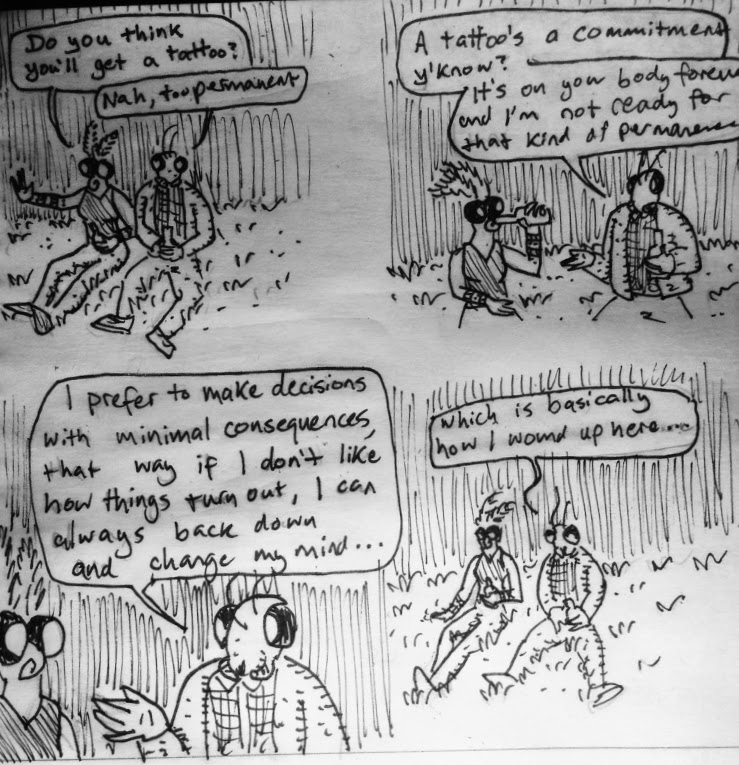 Do you think
you'll get a tattoo?
Nah, too permanent
A tattoo's a commitment
y'know?
It's on your body
and I'm not ready for
that kind of
I prefer to make decisions
with minimal consequences,
that way if I don't like
how things turn out, I can
always back down
and change my mind...
which is basically
how I wound up here....